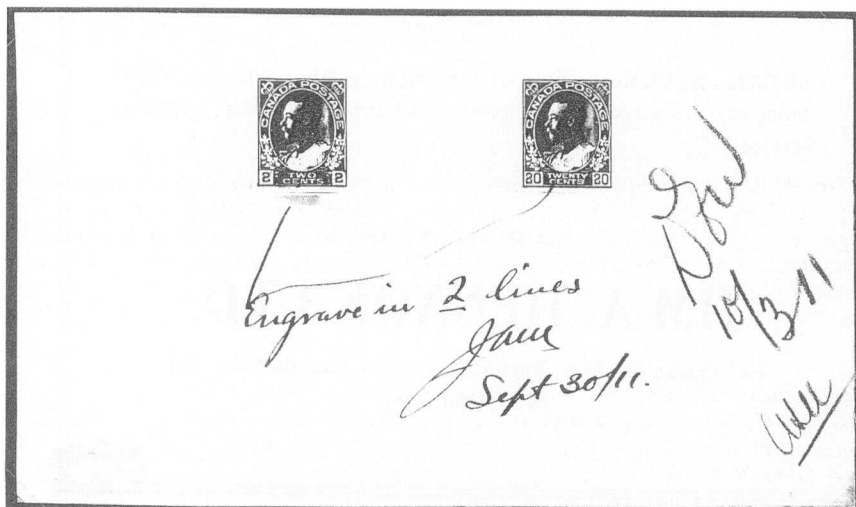 CANADA POSTAGE
2 TWO CENTS 2
CANADA POSTAGE
20 TWENTY CENTS 20
Engrave in 2 lines
Sept 30/11.
10/3/11